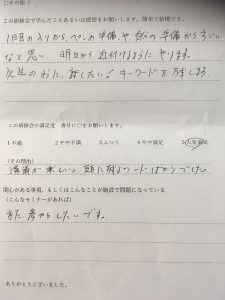 ○その他(
この研修会で学んだことあるいは感想をお願いします。簡単で結構です。
1日目の入りから、ペンの準備や、自分の準備からすごい
なと思い 明日から近付けるように やります。
次だのように、話したい! キーワードを万しよう
この研修会の満足度 番号に○をお願いします。
1不満 2やや不満 3ふつう 4やや満足 5大変満足
(その理由)
講義が楽しい。頭に残るワードばかりでした。
関心がある事項、もしくはこんなことが施設で問題になっている
(こんなセミナーがあれば)
また、参加したいです。
ありがとうございました。